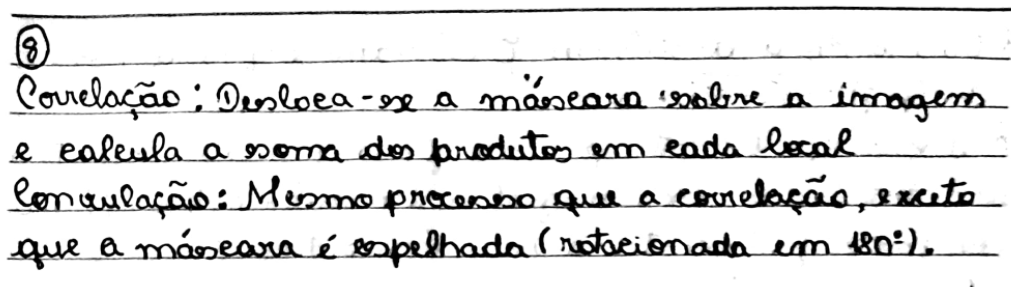 8
Correlação: Desloca-se a máscara sobre a imagem
e calcula a soma dos produtos em cada local
Convulação: Mesmo processo que a correlação, exceto
que a máscara é espelhada (rotacionada em 180º).